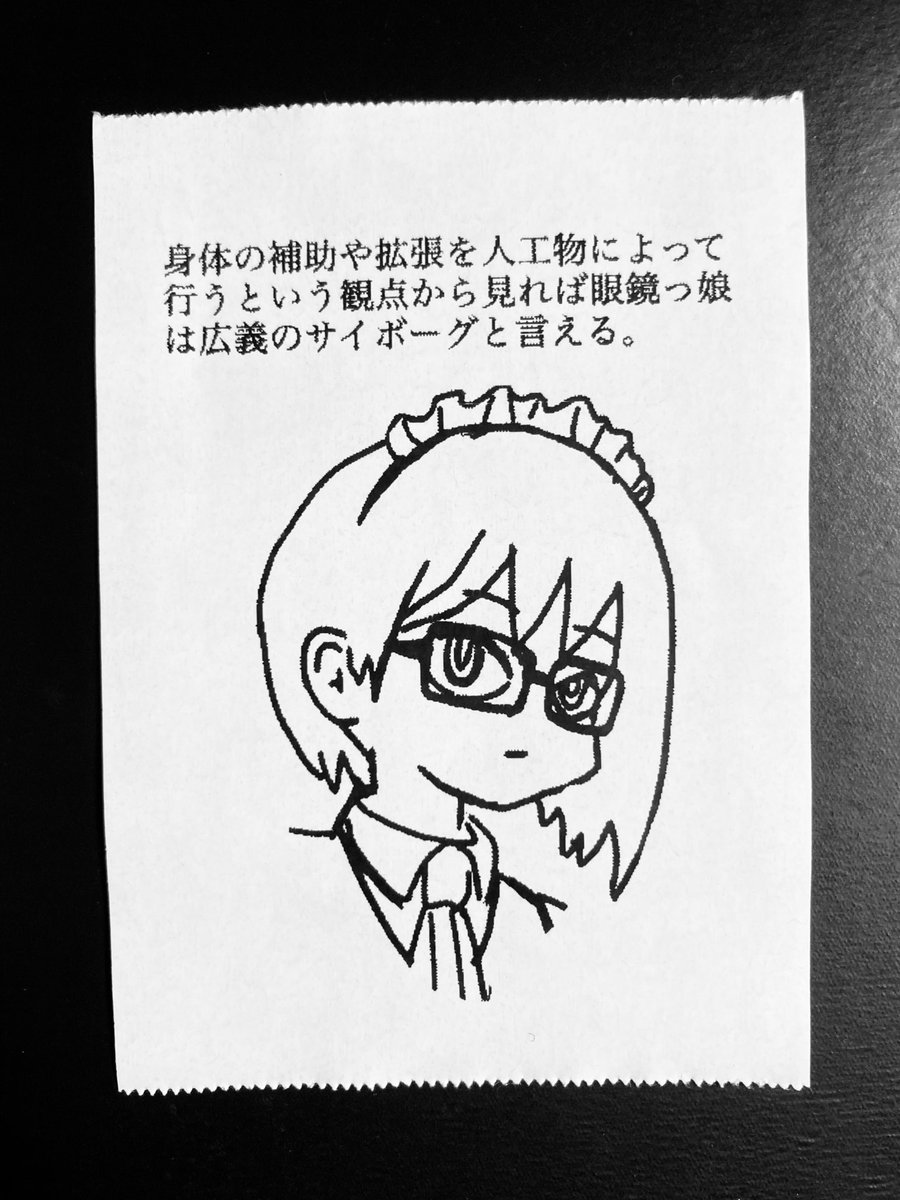 身体の補助や拡張を人工物によって
行うという観点から見れば眼鏡っ娘
は広義のサイボーグと言える。